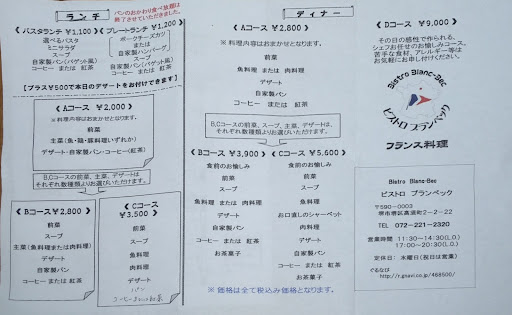 ランチ
パンのおかわり食べ放題は
終了させていただきました。
《 パスタランチ ¥1,100 》
選べるパスタ
ミニサラダ
スープ
自家製パン(バゲット風)
コーヒー または 紅茶
《 プレートランチ ¥1,200 》
ポークチーズカツ
または
自家製ハンバーグ
スープ
自家製パン(バゲット風)
コーヒー または 紅茶
【プラス¥500で本日のデザートをお付けできます】
《 Aコース ¥2,000 》
※料理内容はおまかせとなります。
前菜
主菜(魚・鶏・豚料理いずれか)
デザート・自家製パン・コーヒー(紅茶)
B,Cコースの前菜、スープ、主菜、デザートは、
それぞれ数種類よりお選びいただけます。
《 Bコース ¥2,800 》
前菜
スープ
主菜(魚料理または肉料理)
デザート
自家製パン
コーヒー または 紅茶
《 Cコース ¥3,500 》
前菜
スープ
魚料理
肉料理
デザート
パン
コーヒーまたは紅茶
ディナー
《 Aコース ¥2,800 》
※ 料理内容はおまかせとなります。
前菜
魚料理 または 肉料理
デザート
自家製パン
コーヒー または 紅茶
B,Cコースの前菜、スープ、主菜、デザートは、
それぞれ数種類よりお選びいただけます。
《 Bコース ¥3,900 》
食前のお愉しみ
前菜
スープ
魚料理 または 肉料理
デザート
自家製パン
コーヒー または 紅茶
お茶菓子
《 Cコース ¥5,600 》
食前のお愉しみ
前菜
スープ
魚料理
お口直しのシャーベット
肉料理
デザート
自家製パン
コーヒー または 紅茶
お茶菓子
※ 価格は全て税込み価格となります。
《 Dコース ¥9,000 》
その日の感性で作られる、
シェフお任せのお愉しみコース。
苦手な食材、アレルギー等は
お気軽にお申し付けください。
Bistro Blanc-Bec
ビストロ ブランベック
フランス料理
Bistro Blanc-Bec
ビストロ ブランベック
〒590-0003
堺市堺区高須町2-2-22
TEL 072-221-2320
営業時間 11:30-14:30(L.O.)
17:00-20:30(L.O.)
定休日: 水曜日(祝日は営業)
ぐるなび
http://r.gnavi.co.jp/k68500/